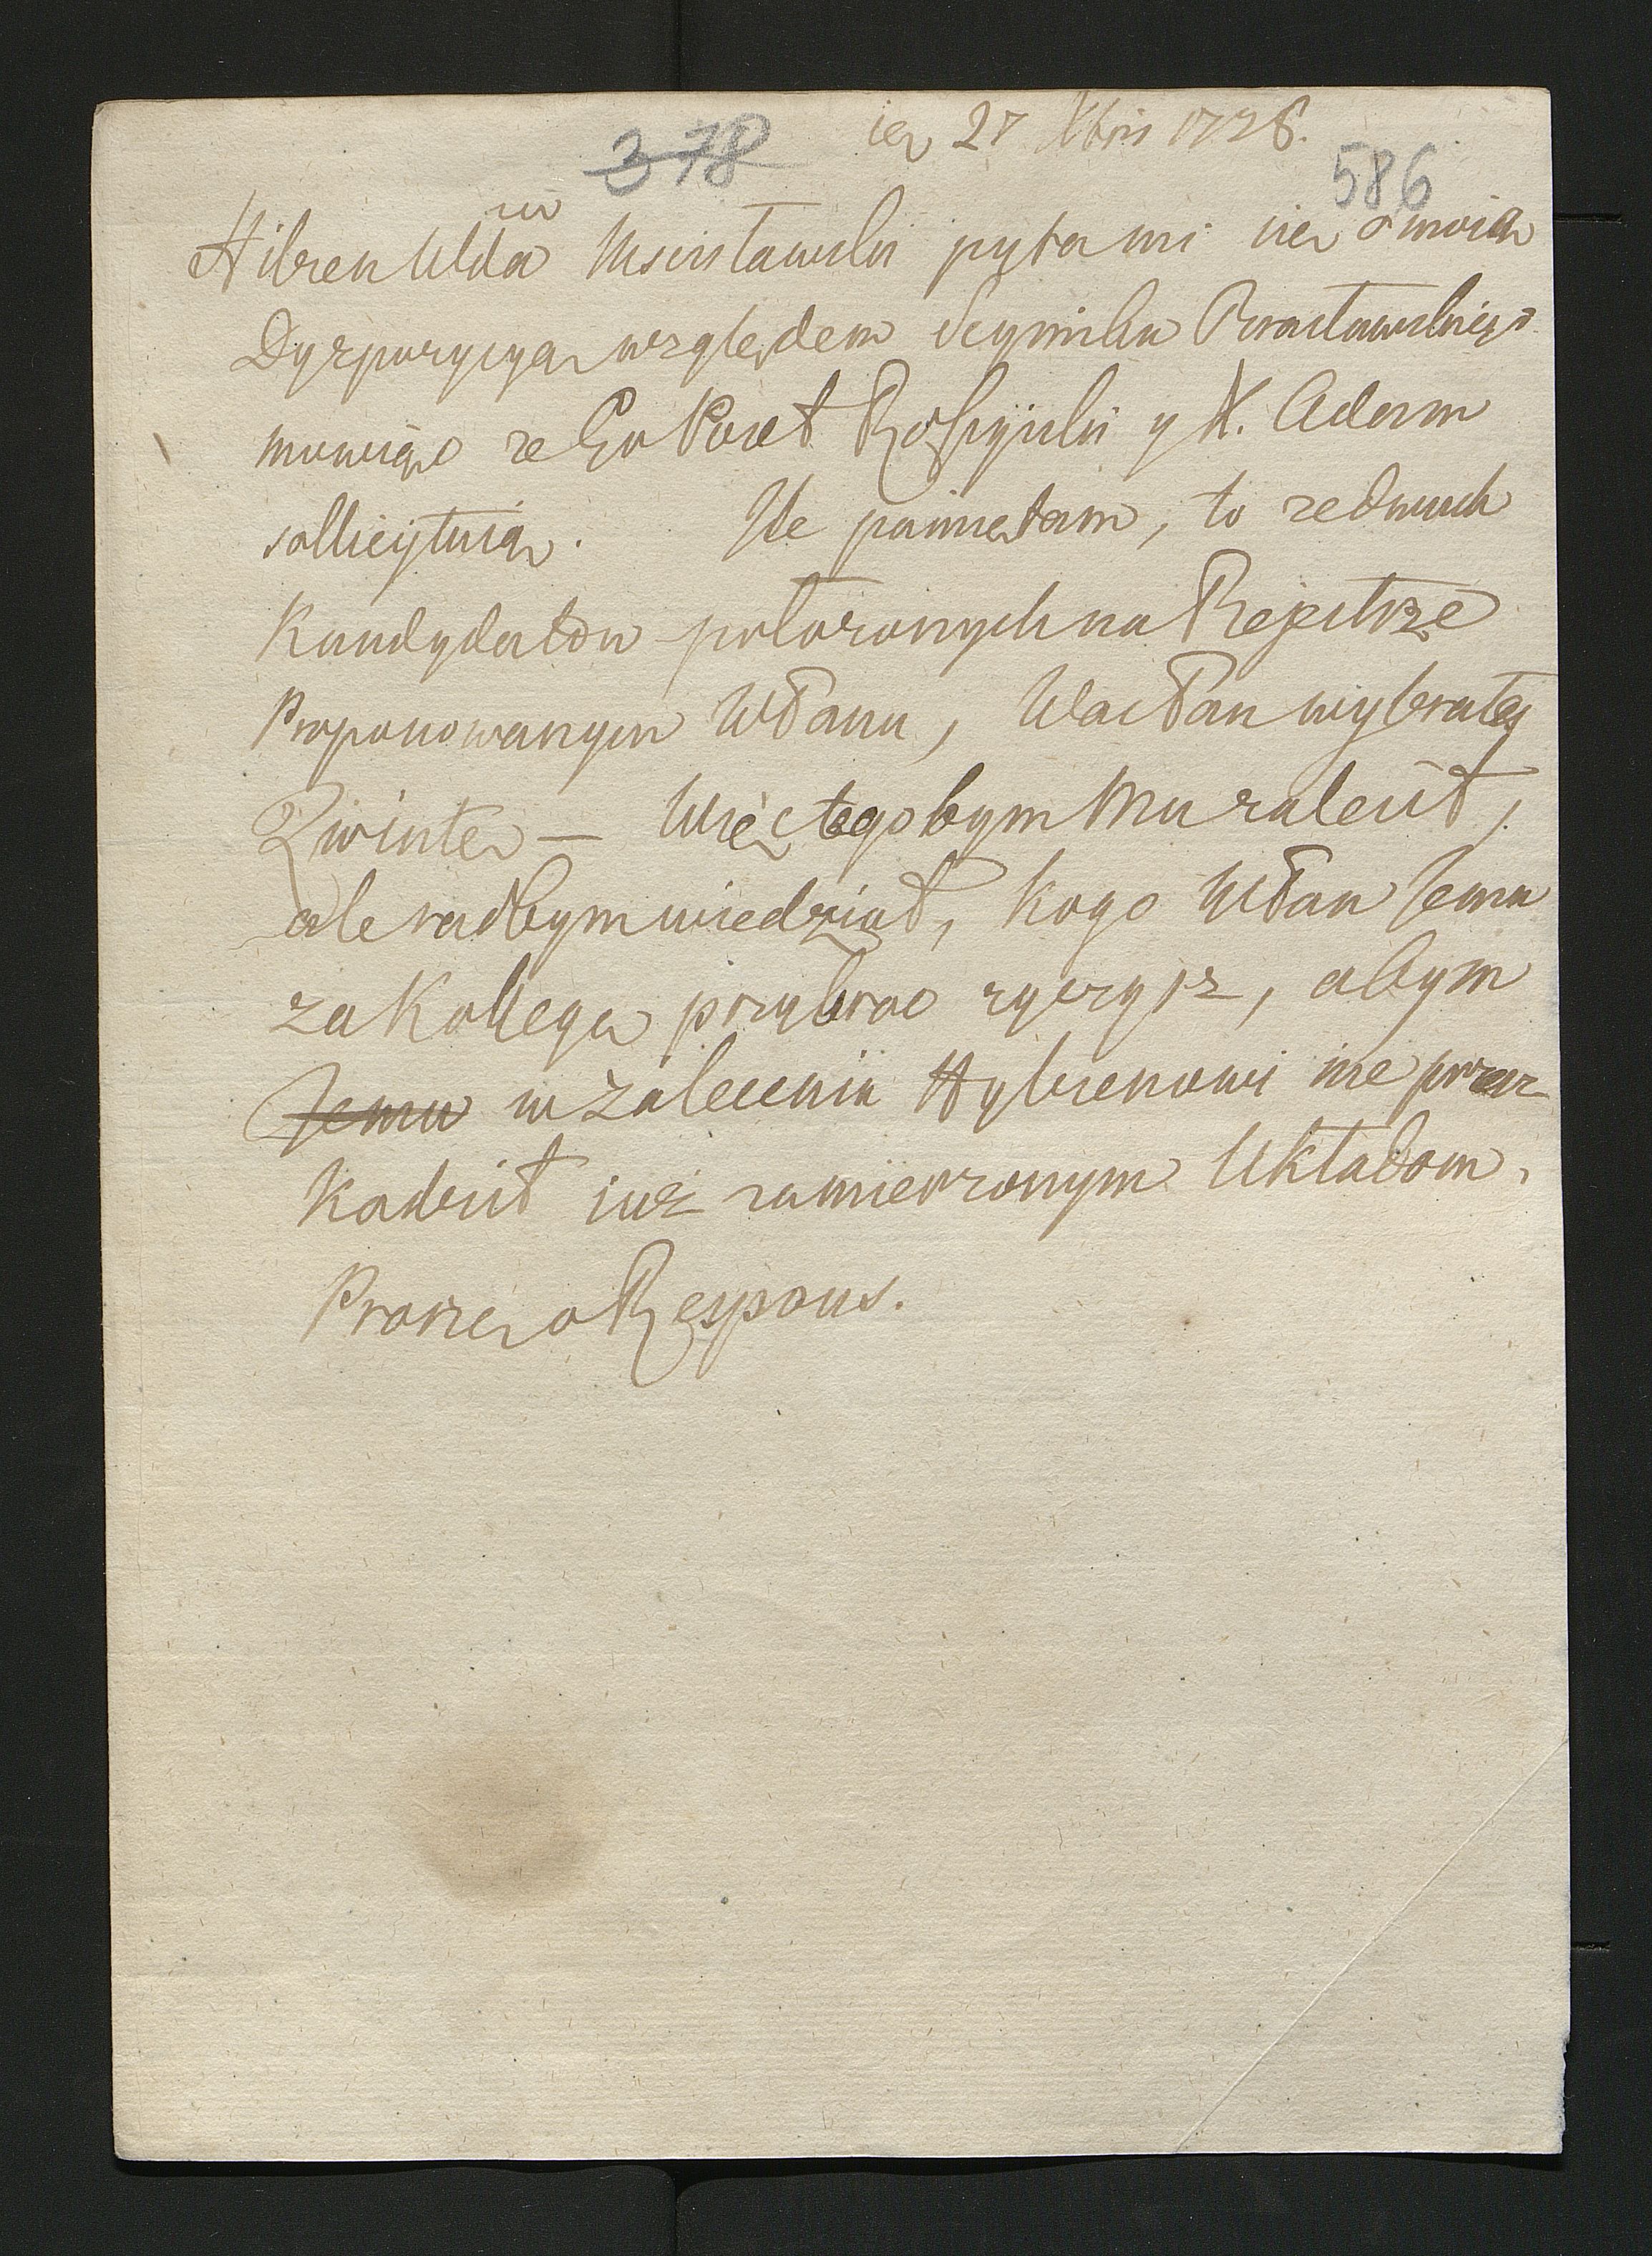 378
27 Xbris
586
Hilzen Wda Mscisławski pyta mi się o moią
Dyzpozycyą względem Seymiku Brasławskiego
mowiąc ze Go Poseł Rossyiski y X. Adam
sollicytuią. Ile pamiętam, to ze dwuch
Kandydatow położonych na Rejestrze
Proponowanym WPanu, WacPan wybrałeś
Zwinte – Więc tego bym Mu zalecił,
ale radbym wiedział, kogo WPan Jemu
za Kollegę przybrac zyczysz, abym
Jemu w zaleceniu Hylzenowi nie przesz-
kadził iuż zamierzonym Układom.
Proszę o Respons.